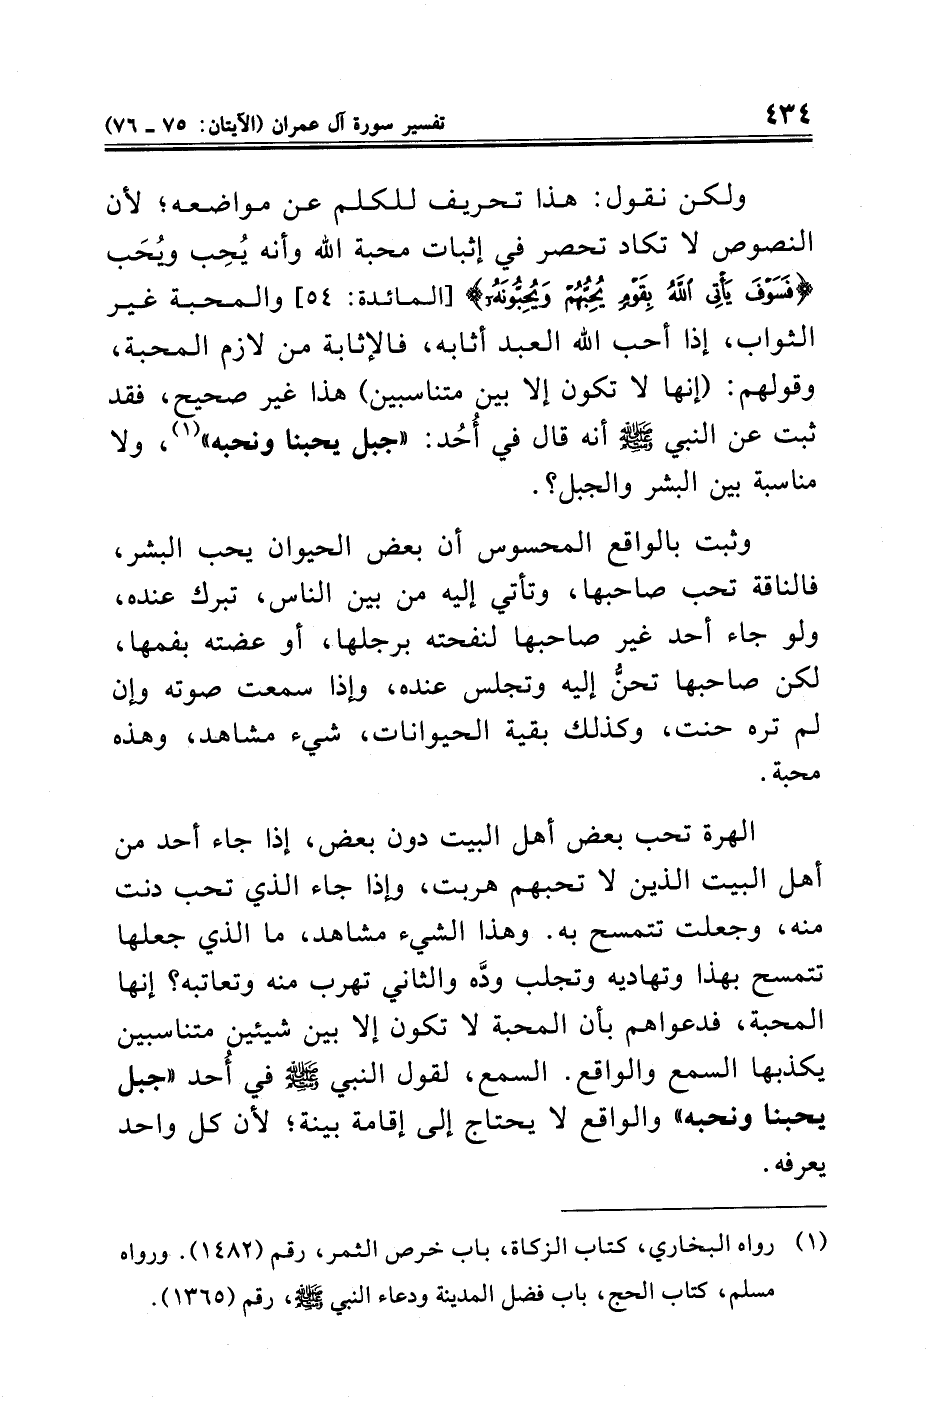 ٤٣٤
تفسير سورة آل عمران (الآيتان: ٧٥ ـ ٧٦)
ولكن نقول: هذا تحريف للكلم عن مواضعه؛ لأن
النصوص لا تكاد تحصر في إثبات محبة الله وأنه يُحِب ويُحَب
﴿فَسَوْفَ يَأْتِي ٱللَّهُ بِقَوْمٍ يُحِبُّهُمْ وَيُحِبُّونَهُۥ﴾ [المائدة: ٥٤] والمحبة غير
الثواب، إذا أحب الله العبد أثابه، فالإثابة من لازم المحبة،
وقولهم: (إنها لا تكون إلا بين متناسبين) هذا غير صحيح، فقد
ثبت عن النبي ﷺ أنه قال في أُحُد: «جبل يحبنا ونحبه»(١)، ولا
مناسبة بين البشر والجبل؟.
وثبت بالواقع المحسوس أن بعض الحيوان يحب البشر،
فالناقة تحب صاحبها، وتأتي إليه من بين الناس، تبرك عنده،
ولو جاء أحد غير صاحبها لنفحته برجلها، أو عضته بفمها،
لكن صاحبها تحنُّ إليه وتجلس عنده، وإذا سمعت صوته وإن
لم تره حنت، وكذلك بقية الحيوانات، شيء مشاهد، وهذه
محبة.
الهرة تحب بعض أهل البيت دون بعض، إذا جاء أحد من
أهل البيت الذين لا تحبهم هربت، وإذا جاء الذي تحب دنت
منه، وجعلت تتمسح به. وهذا الشيء مشاهد، ما الذي جعلها
تتمسح بهذا وتهاديه وتجلب ودَّه والثاني تهرب منه وتعاتبه؟ إنها
المحبة، فدعواهم بأن المحبة لا تكون إلا بين شيئين متناسبين
يكذبها السمع والواقع. السمع، لقول النبي ﷺ في أُحد «جبل
يحبنا ونحبه» والواقع لا يحتاج إلى إقامة بينة؛ لأن كل واحد
يعرفه.
(١) رواه البخاري، كتاب الزكاة، باب خرص الثمر، رقم (١٤٨٢). ورواه
مسلم، كتاب الحج، باب فضل المدينة ودعاء النبي ﷺ، رقم (١٣٦٥).